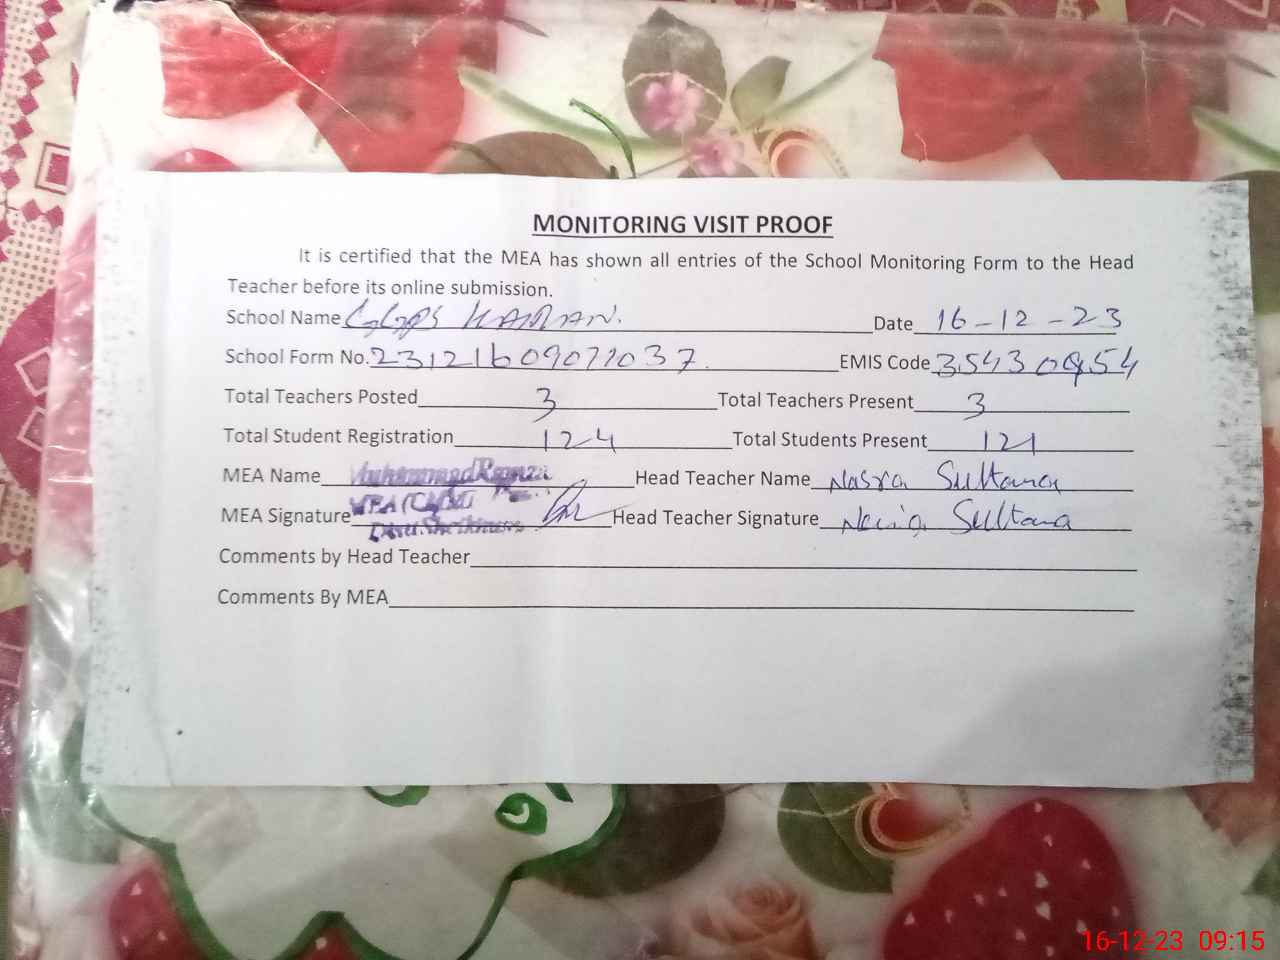 MONITORING VISIT PROOF
It is certified that the MEA has shown all entries of the School Monitoring Form to the Head
Teacher before its online submission.
School Name GGPS KAMRAN. Date 16-12-23
School Form No. 23121609071037. EMIS Code 35430954
Total Teachers Posted 3 Total Teachers Present 3
Total Student Registration 124 Total Students Present 121
MEA Name Muhammad Head Teacher Name Nasra Sultana
MEA Signature Head Teacher Signature Sultana
Comments by Head Teacher
Comments By MEA
16-12-23 09:15